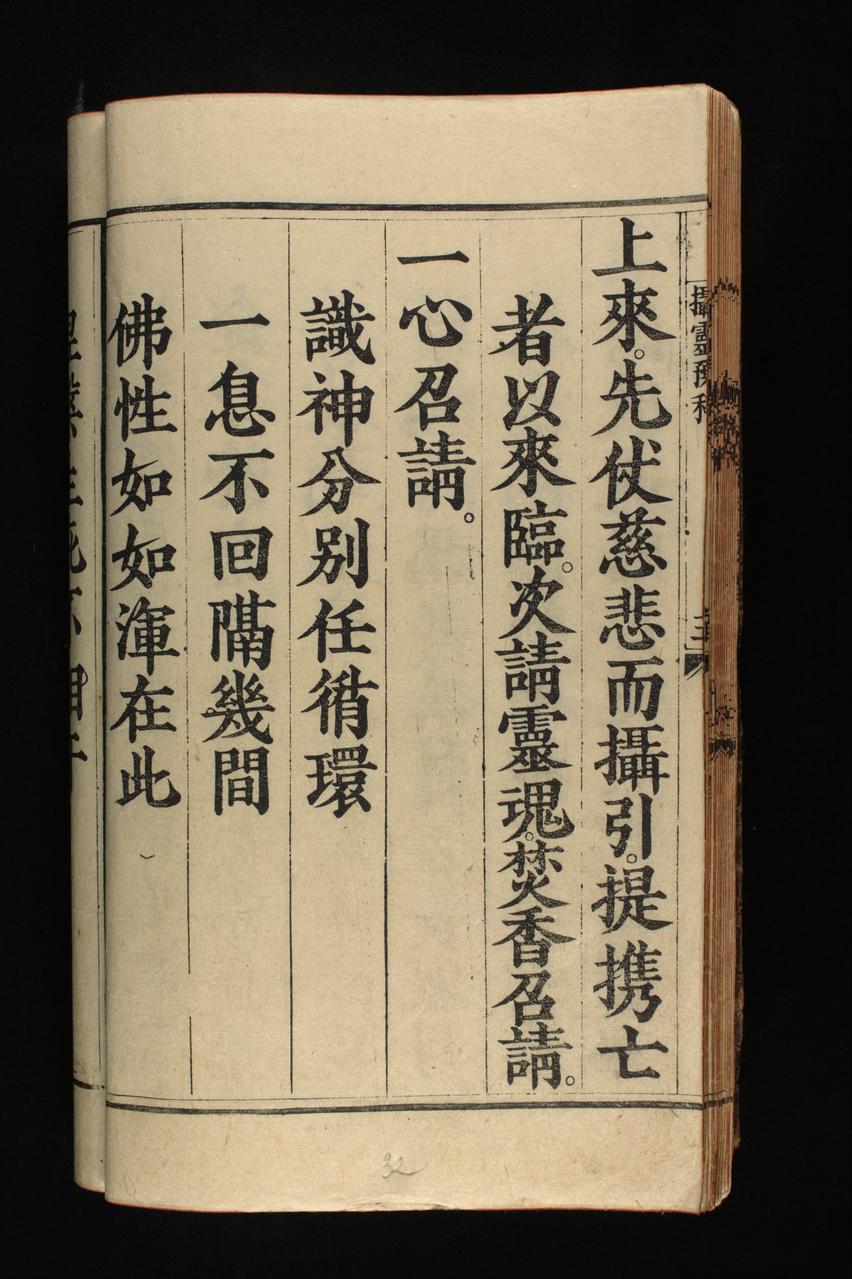 攝靈預科
上來。先伏慈悲而攝引。提携亡
者以來臨。次請靈魂。焚香召請。
一心召請。
識神分別任循環
一息不回隔幾間
佛性如如渾在此
32